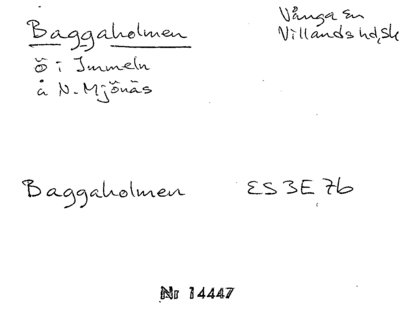 Baggaholmen
ö i Immeln
å N. Mjönäs
Vånga sn
Villands hd, Sk
Baggaholmen
ES 3E 7b
Nr 14447